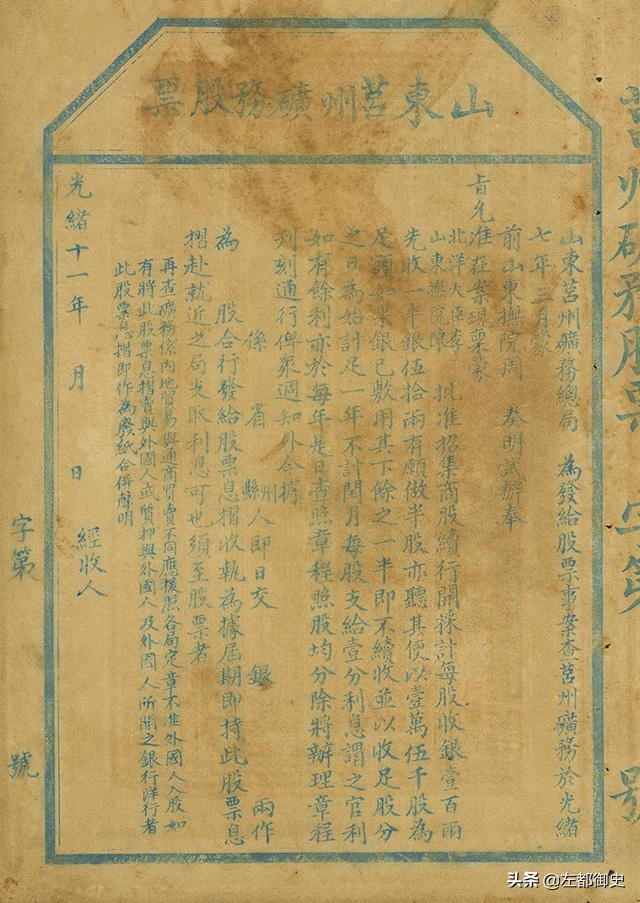 山東莒州礦務股票
莒州礦務股票 字第 號
山東莒州礦務總局 為發給股票事案查莒州礦務於光緒
七年三月蒙
前山東撫院周 奏明試辦奉
旨允准在案現稟蒙
北洋大臣李
山東撫院陳
批准招集商股續行開採計每股收銀壹百兩
先收一半銀伍拾兩有願做半股亦聽其便以壹萬伍千股為
足額如果銀已敷用其下餘之一半即不續收並以收足股分
之日為始計足一年不計閏月每股支給壹分利息謂之官利
如有餘利亦於每年是日查照章程照股均分除將辦理章程
刊刻通行俾眾週知外今據
係 省 州縣 人即日交 銀 兩作
為 股合行發給股票息摺收執為據屆期即持此股票息
摺赴就近之局支取利息可也須至股票者
再查礦務係內地貿易與通商買賣不同應援照各局定章不准外國人入股如
有將此股票息摺賣與外國人或質押與外國人及外國人所開之銀行洋行者
此股票息摺即作為廢紙合併聲明
光緒十一年 月 日 經收人
字第 號
头条 @左都御史